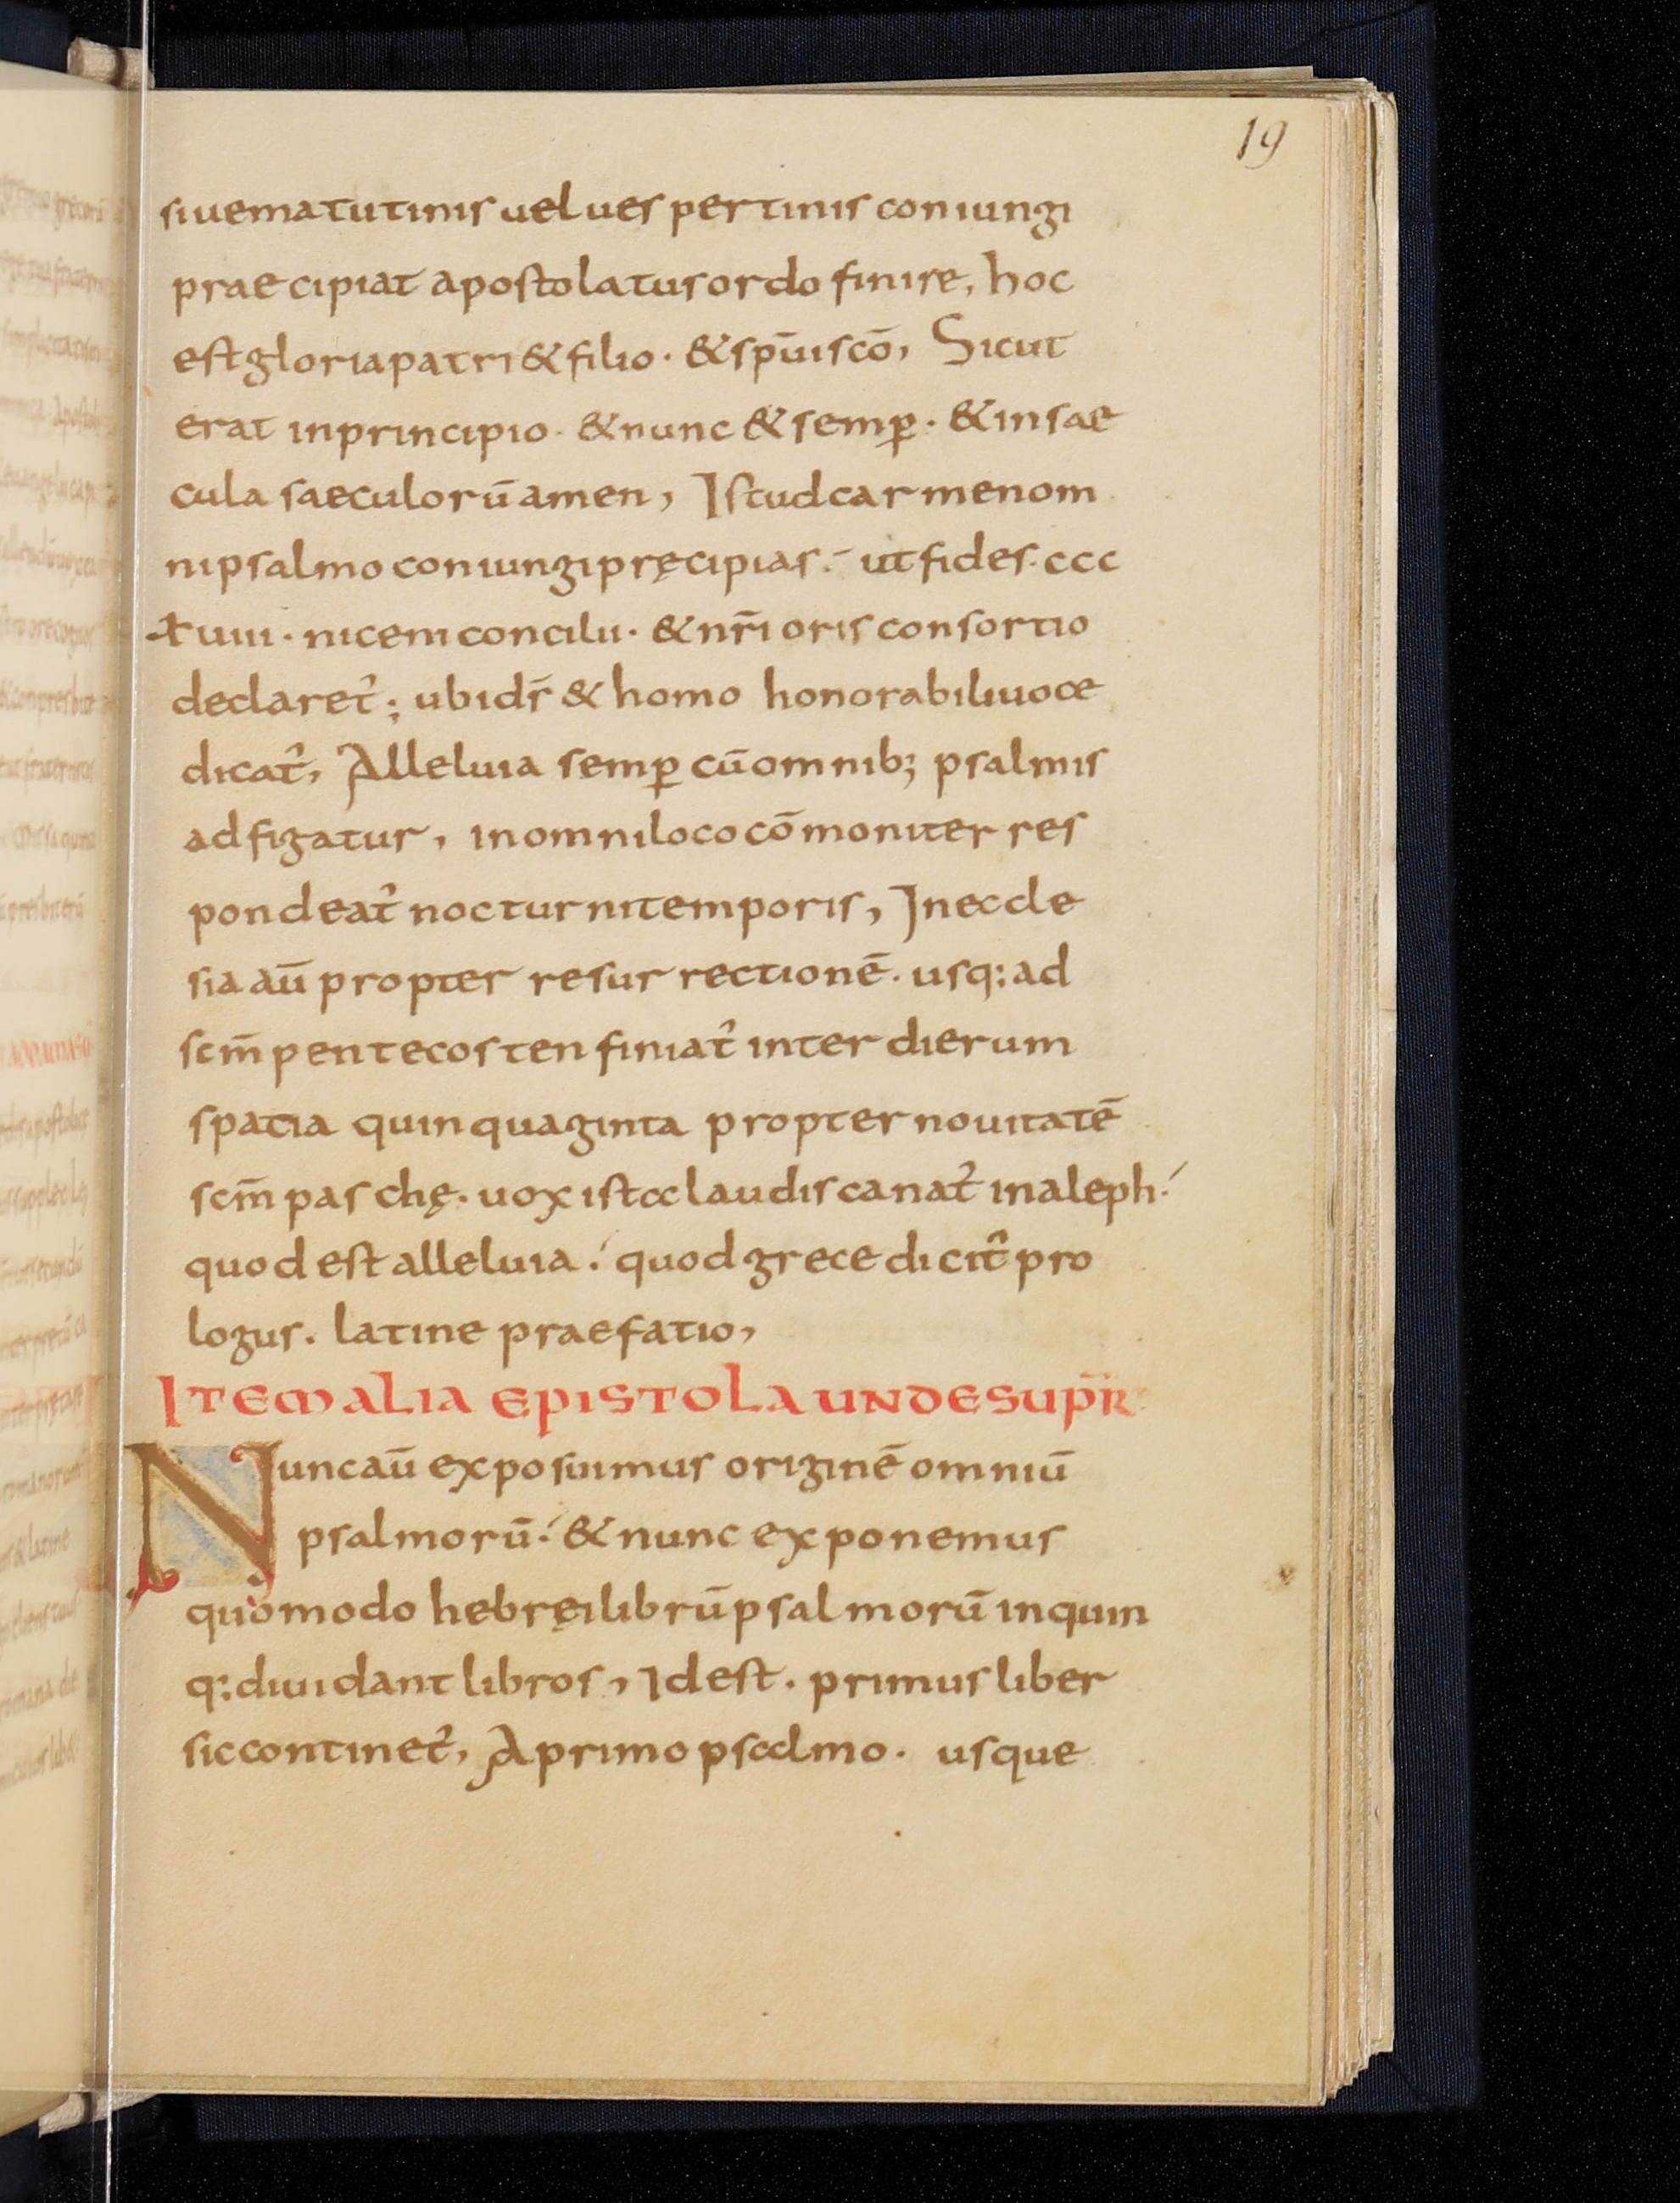 19
siue matutinis uel uespertinis coniungi
praecipiat apostolatus ordo finire, hoc
est gloria patri & filio · & sp̄ui scō, Sicut
erat in principio · & nunc & semꝑ · & in sae
cula saeculorū amen, Istud carmen om
ni psalmo coniungi pręcipias · ut fides · ccc
xuiii · niceni concilii · & nr̄i oris consortio
declaret᷑; ubi dr̄ & homo honorabili uoce
dicat᷑, Alleluia semꝑ cū omnib; psalmis
adfigatur, in omni loco cōmoniter res
pondeat᷑ nocturni temporis, In eccle
sia aū propter resurrectionē · usq; ad
scm̄ pentecosten finiat᷑ inter dierum
spatia quinquaginta propter nouitatē
scm̄ paschę · uox ista laudis canat᷑ in aleph ·
quod est alleluia · quod grece dicit᷑ pro
logus · latine praefatio,
ITEM ALIA EPISTOLA UNDE SUPR̄
Nunc aū exposuimus originē omniū
psalmorū · & nunc exponemus
quomodo hebręi librū psalmorū in quin
q; diuidant libros, Id est · primus liber
sic continet᷑, A primo psalmo · usque